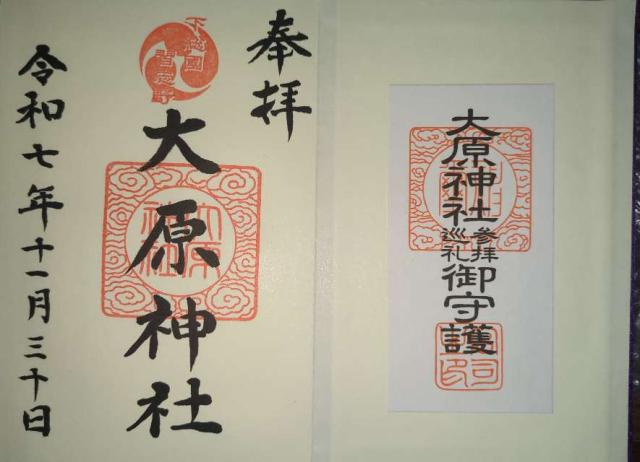 奉拝
下総國
習志野
大原神社
令和七年十一月三十日
大原神社
参拝
巡礼
御守護